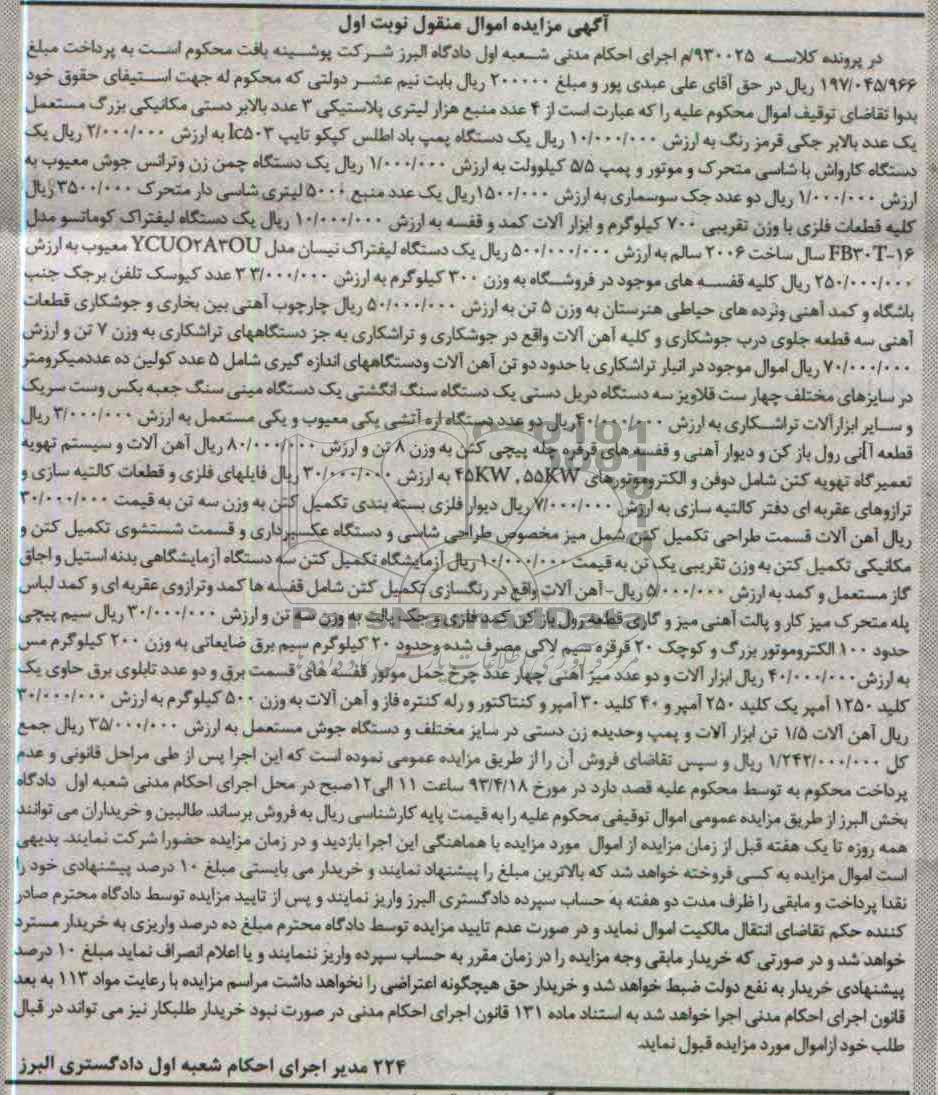 آگهی مزایده اموال منقول نوبت اول
در پرونده کلاسه ۹۳۰۰۲۵/م اجرای احکام مدنی شعبه اول دادگاه البرز شرکت پوشینه بافت محکوم است به پرداخت مبلغ
۱۹۷/۰۴۵/۹۶۶ ریال در حق آقای علی عبدی پور و مبلغ ۲۰۰۰۰۰ ریال بابت نیم عشر دولتی که محکوم له جهت استیفای حقوق خود
بدوا تقاضای توقیف اموال محکوم علیه را که عبارت است از ۴ عدد منبع هزار لیتری پلاستیکی ۳ عدد بالابر دستی مکانیکی بزرگ مستعمل
یک عدد بالابر جکی قرمز رنگ به ارزش ۱۰/۰۰۰/۰۰۰ ریال یک دستگاه پمپ باد اطلس کپکو تایپ lc۵۰۳ به ارزش ۲/۰۰۰/۰۰۰ ریال یک
دستگاه کارواش با شاسی متحرک و موتور و پمپ ۵/۵ کیلوولت به ارزش ۱/۰۰۰/۰۰۰ ریال یک دستگاه چمن زن وترانس جوش معیوب به
ارزش ۱/۰۰۰/۰۰۰ ریال دو عدد جک سوسماری به ارزش ۱۵۰۰/۰۰۰ریال یک عدد منبع ۵۰۰۰ لیتری شاسی دار متحرک ۳۵۰۰/۰۰۰ ریال
کلیه قطعات فلزی با وزن تقریبی ۷۰۰ کیلوگرم و ابزار آلات کمد و قفسه به ارزش ۱۰/۰۰۰/۰۰۰ ریال یک دستگاه لیفتراک کوماتسو مدل
FB۳۰T-۱۶ سال ساخت ۲۰۰۶ سالم به ارزش ۵۰۰/۰۰۰/۰۰۰ ریال یک دستگاه لیفتراک نیسان مدل YCUO۲A۳OU معیوب به ارزش
۲۵۰/۰۰۰/۰۰۰ ریال کلیه قفسه های موجود در فروشگاه به وزن ۳۰۰ کیلوگرم به ارزش ۳/۰۰۰/۰۰۰ ۳ عدد کیوسک تلفن برجک جنب
باشگاه و کمد آهنی ونرده های حیاطی هنرستان به وزن ۵ تن به ارزش ۵۰/۰۰۰/۰۰۰ ریال چارچوب آهنی بین بخاری و جوشکاری قطعات
آهنی سه قطعه جلوی درب جوشکاری و کلیه آهن آلات واقع در جوشکاری و تراشکاری به جز دستگاههای تراشکاری به وزن ۷ تن و ارزش
۷۰/۰۰۰/۰۰۰ ریال اموال موجود در انبار تراشکاری با حدود دو تن آهن آلات ودستگاههای اندازه گیری شامل ۵ عدد کولین ده عددمیکرومتر
در سایزهای مختلف چهار ست قلاویز سه دستگاه دریل دستی یک دستگاه سنگ انگشتی یک دستگاه مینی سنگ جعبه بکس وست سریک
و سایر ابزارآلات تراشکاری به ارزش ۴۰/۰۰۰/۰۰۰ریال دو عدد دستگاه اره آتشی یکی معیوب و یکی مستعمل به ارزش ۳/۰۰۰/۰۰۰ ریال
قطعه آنی رول باز کن و دیوار آهنی و قفسه های قرقره چله پیچی کتن به وزن ۸ تن و ارزش ۸۰/۰۰۰/۰۰۰ ریال آهن آلات و سیستم تهویه
تعمیرگاه تهویه کتن شامل دوفن و الکتروموتورهای ۴۵KW , ۵۵KW به ارزش ۳۰/۰۰۰/۰۰۰ ریال فایلهای فلزی و قطعات کالتیه سازی و
ترازوهای عقربه ای دفتر کالتیه سازی به ارزش ۷/۰۰۰/۰۰۰ ریال دیوار فلزی بسته بندی تکمیل کتن به وزن سه تن به قیمت ۳۰/۰۰۰/۰۰۰
ریال آهن آلات قسمت طراحی تکمیل کتن شمل میز مخصوص طراحی شاسی و دستگاه عکسبرداری و قسمت شستشوی تکمیل کتن و
مکانیکی تکمیل کتن به وزن تقریبی یک تن به قیمت ۱۰/۰۰۰/۰۰۰ ریال آزمایشگاه تکمیل کتن سه دستگاه آزمایشگاهی بدنه استیل و اجاق
گاز مستعمل و کمد به ارزش ۵/۰۰۰/۰۰۰ ریال-آهن آلات واقع در رنگسازی تکمیل کتن شامل قفسه ها کمد وترازوی عقربه ای و کمد لباس
پله متحرک میز کار و پالت آهنی میز و گاری قطعه رول باز کن کمد فلزی و جک پالت به وزن سه تن و ارزش ۳۰/۰۰۰/۰۰۰ ریال سیم پیچی
حدود ۱۰۰ الکتروموتور بزرگ و کوچک ۲۰ قرقره سیم لاکی مصرف شده وحدود ۲۰ کیلوگرم سیم برق ضایعاتی به وزن ۲۰۰ کیلوگرم مس
به ارزش۴۰/۰۰۰/۰۰۰ ریال ابزار آلات و دو عدد میز آهنی چهار عدد چرخ حمل موتور قفسه های قسمت برق و دو عدد تابلوی برق حاوی یک
کلید ۱۲۵۰ آمپر یک کلید ۲۵۰ آمپر و ۴۰ کلید ۳۰ آمپر و کنتاکتور و رله کنتره فاز و آهن آلات به وزن ۵۰۰ کیلوگرم به ارزش ۳۰/۰۰۰/۰۰۰
ریال آهن آلات ۱/۵ تن ابزار آلات و پمپ وحدیده زن دستی در سایز مختلف و دستگاه جوش مستعمل به ارزش ۳۵/۰۰۰/۰۰۰ ریال جمع
کل ۱/۲۴۲/۰۰۰/۰۰۰ ریال و سپس تقاضای فروش آن را از طریق مزایده عمومی نموده است که این اجرا پس از طی مراحل قانونی و عدم
پرداخت محکوم به توسط محکوم علیه قصد دارد در مورخ ۹۳/۴/۱۸ ساعت ۱۱ الی۱۲صبح در محل اجرای احکام مدنی شعبه اول دادگاه
بخش البرز از طریق مزایده عمومی اموال توقیفی محکوم علیه را به قیمت پایه کارشناسی ریال به فروش برساند. طالبین و خریداران می توانند
همه روزه تا یک هفته قبل از زمان مزایده از اموال مورد مزایده با هماهنگی این اجرا بازدید و در زمان مزایده حضورا شرکت نمایند. بدیهی
است اموال مزایده به کسی فروخته خواهد شد که بالاترین مبلغ را پیشنهاد نمایند و خریدار می بایستی مبلغ ۱۰ درصد پیشنهادی خود را
نقدا پرداخت و مابقی را ظرف مدت دو هفته به حساب سپرده دادگستری البرز واریز نمایند و پس از تایید مزایده توسط دادگاه محترم صادر
کننده حکم تقاضای انتقال مالکیت اموال نماید و در صورت عدم تایید مزایده توسط دادگاه محترم مبلغ ده درصد واریزی به خریدار مسترد
خواهد شد و در صورتی که خریدار مابقی وجه مزایده را در زمان مقرر به حساب سپرده واریز ننمایند و یا اعلام انصراف نماید مبلغ ۱۰ درصد
پیشنهادی خریدار به نفع دولت ضبط خواهد شد و خریدار حق هیچگونه اعتراضی را نخواهد داشت مراسم مزایده با رعایت مواد ۱۱۳ به بعد
قانون اجرای احکام مدنی اجرا خواهد شد به استناد ماده ۱۳۱ قانون اجرای احکام مدنی در صورت نبود خریدار طلبکار نیز می تواند در قبال
طلب خود ازاموال مورد مزایده قبول نماید.
۲۲۴ مدیر اجرای احکام شعبه اول دادگستری البرز